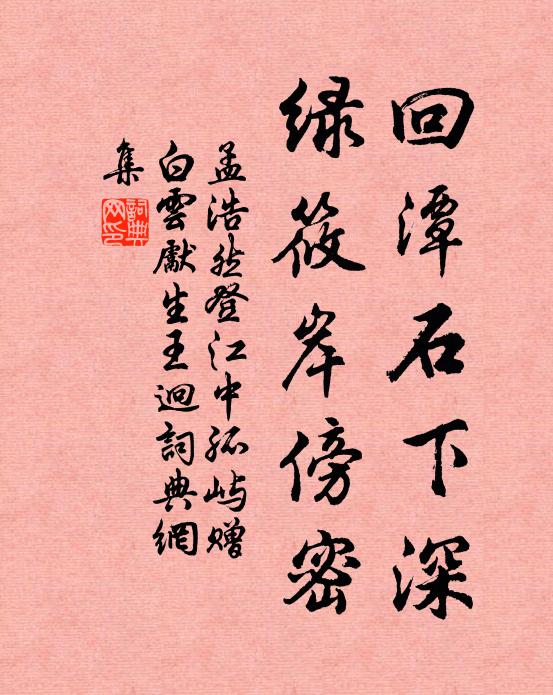 回潭石下深
绿筱岸傍密
孟浩然登江中孤屿赠
白雲獻生王迥詞典網
集
詞典
网印